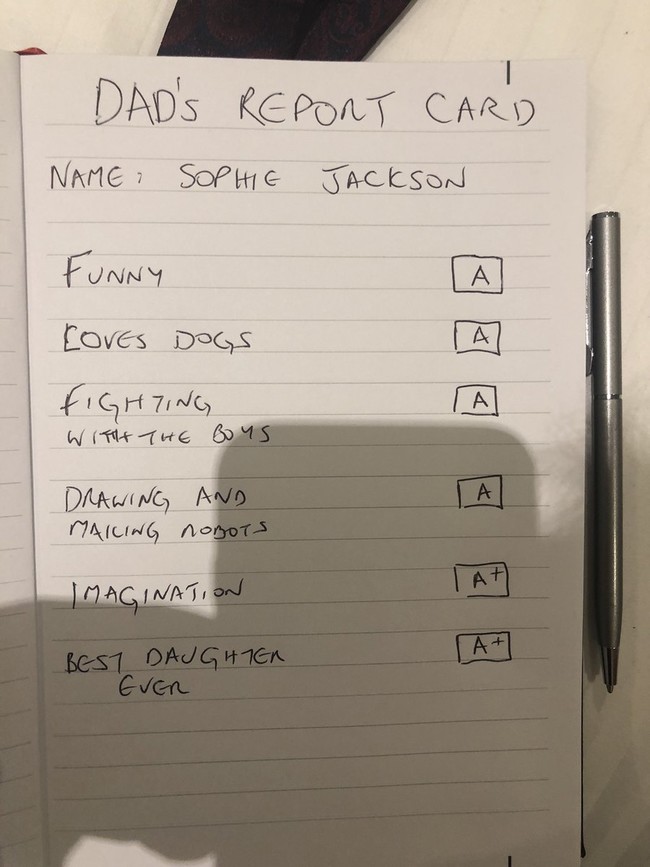 DAD'S REPORT CARD
NAME: SOPHIE JACKSON
FUNNY A
LOVES DOGS A
FIGHTING A
WITH THE BOYS
DRAWING AND A
MAKING ROBOTS
IMAGINATION A+
BEST DAUGHTER A+
EVER